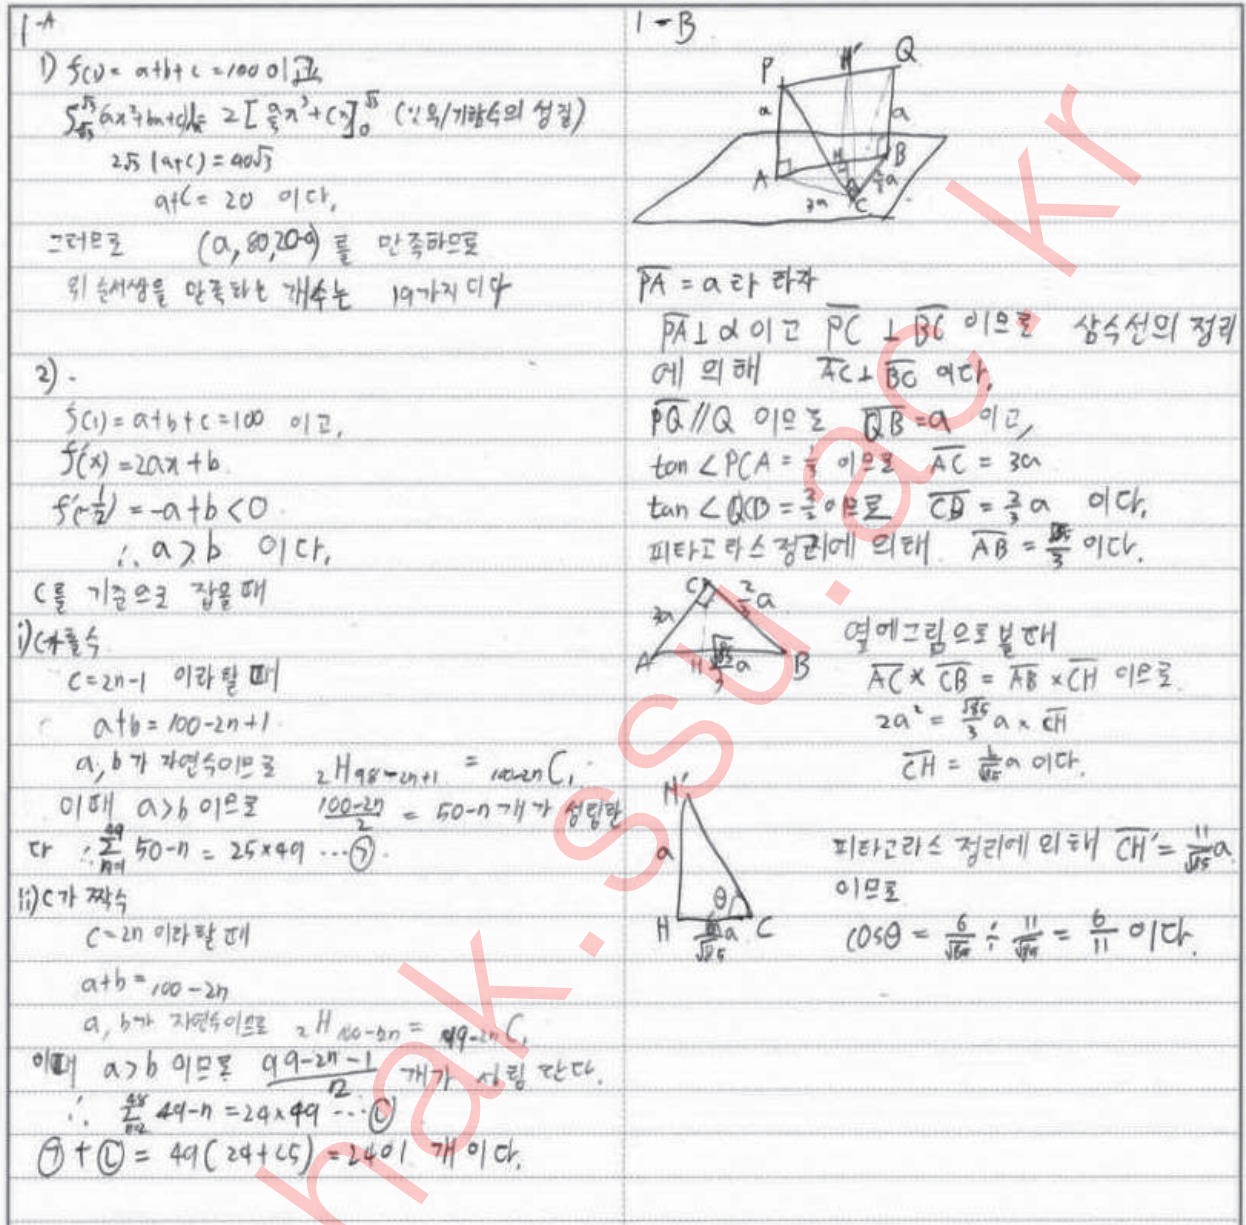 1-A
1) f(1) = a+b+c = 100 이고
∫_{-√3}^{√3} (ax²+bx+c)dx = 2[a/3 x³+cx]₀^{√3} (우/기함수의 성질)
2√3 (a+c) = 40√3
a+c = 20 이다.
그러므로 (a, 80, 20-a) 를 만족하므로
위 순서쌍을 만족하는 개수는 19가지이다
2).
f(1) = a+b+c = 100 이고,
f'(x) = 2ax + b
f'(-1/2) = -a+b < 0
∴ a > b 이다,
C를 기준으로 잡을 때
i) C가 홀수
C = 2n-1 이라 할 때
a+b = 100-2n+1
a, b가 자연수이므로 ₂H_{98-2n+1} = _{100-2n}C₁
이때 a>b 이므로 (100-2n)/2 = 50-n 개가 성립한
다 ∴ Σ 50-n = 25×49 … ㉠
ii) C가 짝수
C = 2n 이라 할 때
a+b = 100-2n
a, b가 자연수이므로 = _{99-2n}C₁
이때 a>b 이므로 (99-2n-1)/2 개가 성립 한다.
∴ Σ 49-n = 24×49 … ㉡
㉠ + ㉡ = 49(24+25) = 2401 개 이다.
1-B
P
H'
Q
a
a
A
H
B
2/3 a
3a
C
PA = a 라 하자
PA ⊥ α 이고 PC ⊥ BC 이므로 삼수선의 정리
에 의해 AC ⊥ BC 이다,
PQ // Q 이므로 QB = a 이고,
tan∠PCA = 1/3 이므로 AC = 3a
tan∠QCB = 3/2 이므로 CB = 2/3 a 이다,
피타고라스 정리에 의해. AB = √85/3 이다.
C
3a
2/3 a
A
H
√85/3 a
B
옆에그림으로 볼 때
AC × CB = AB × CH 이므로
2a² = √85/3 a × CH
CH = 6/√85 a 이다.
H'
a
θ
H
6/√85 a
C
피타고라스 정리에 의해 CH' = 11/√85 a
이므로
cosθ = 6/√85 ÷ 11/√85 = 6/11 이다.
hak.su.ac.kr